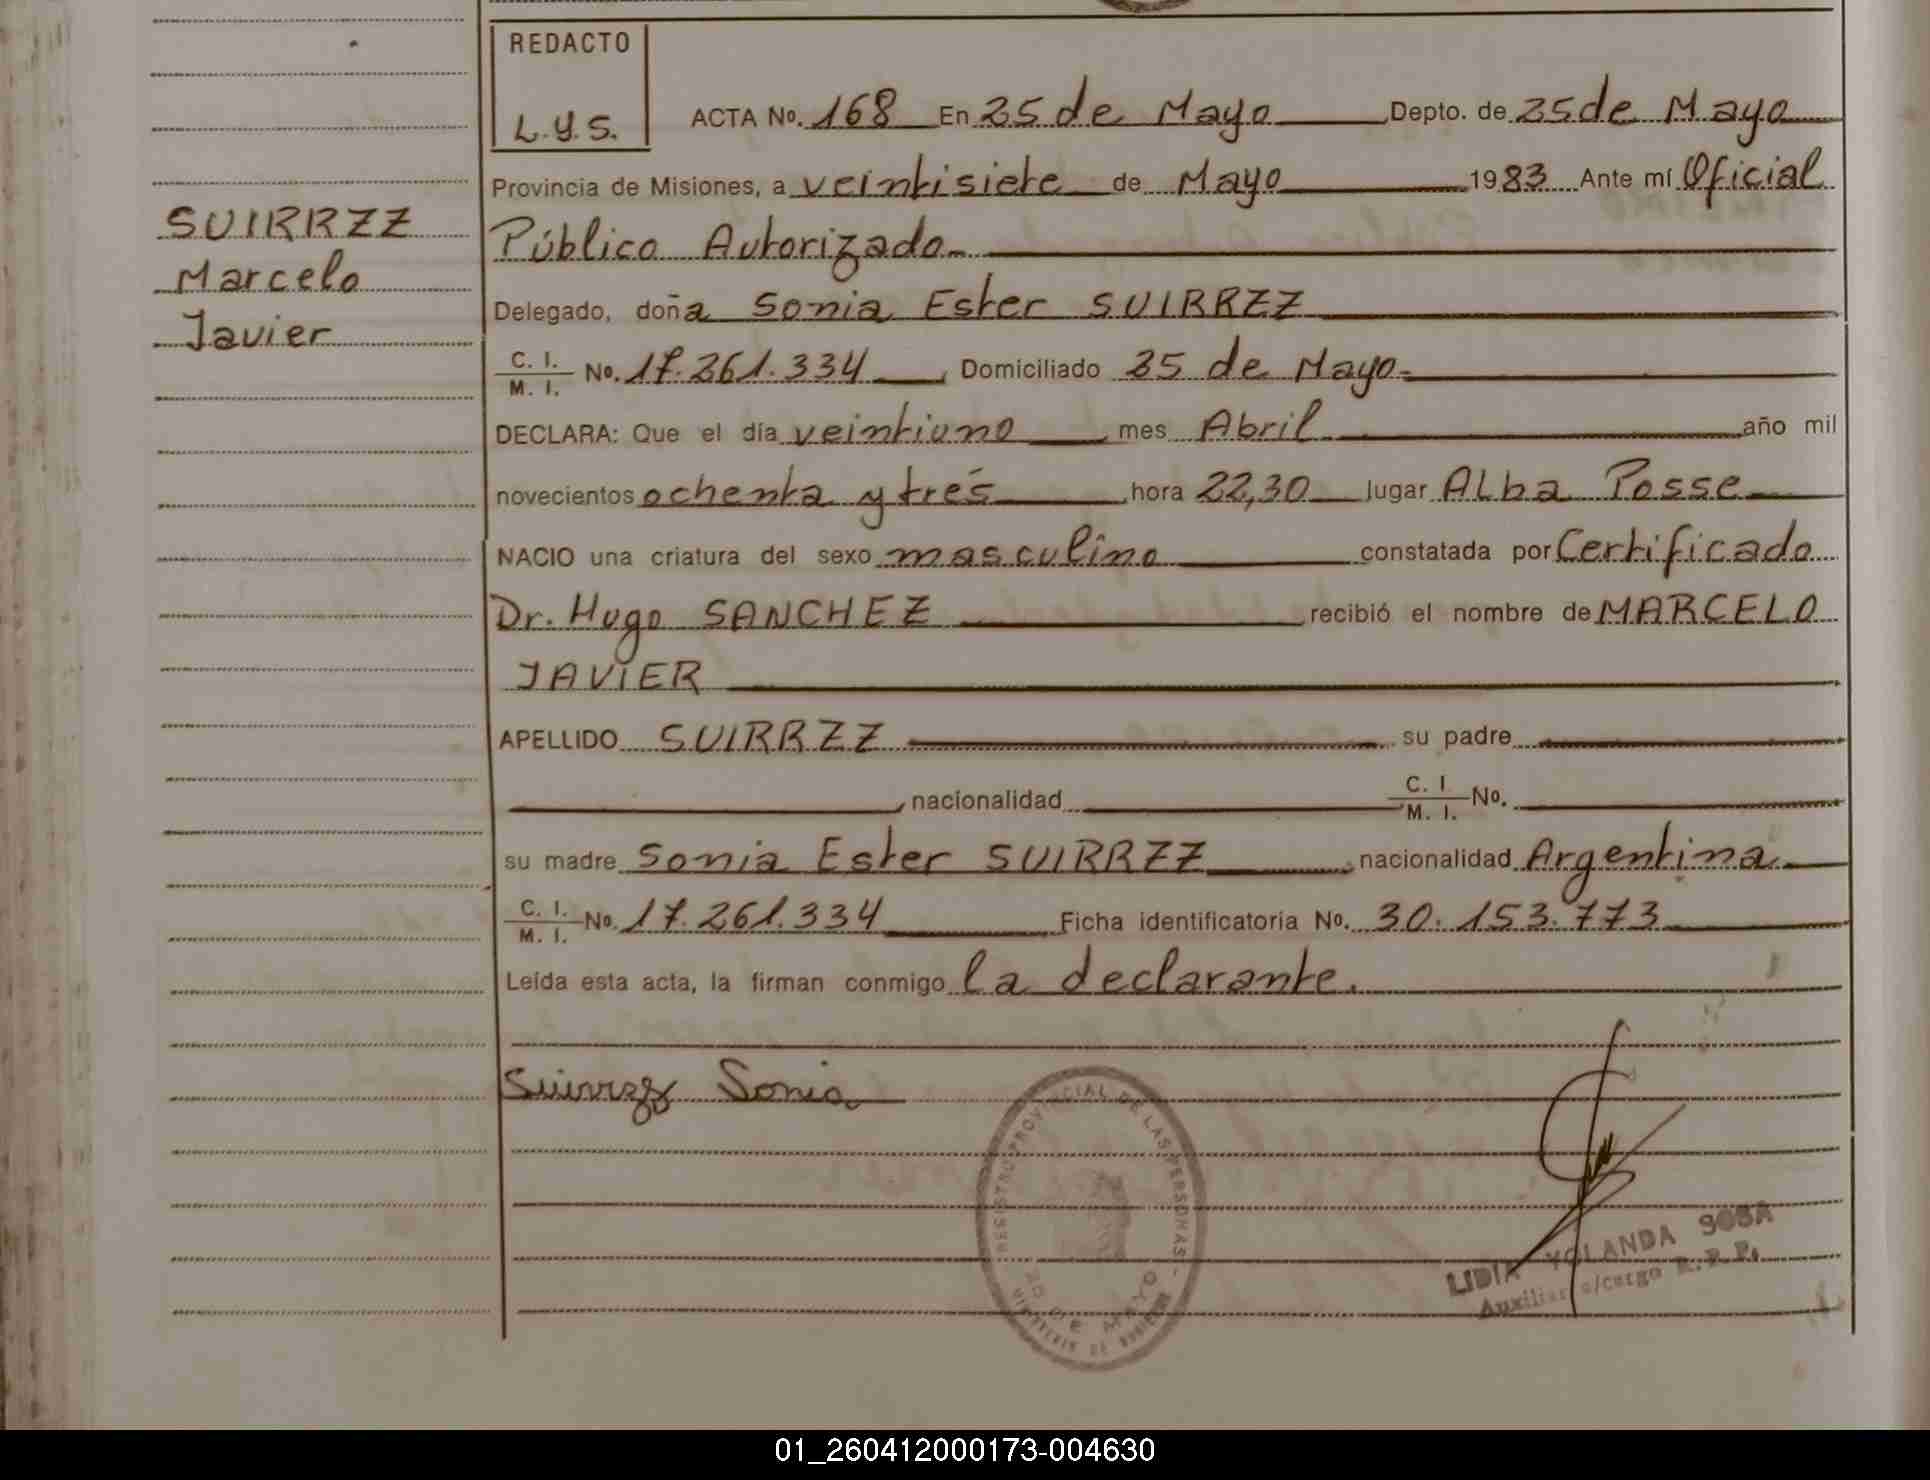 REDACTO
L.Y.S.
ACTA No. 168 En 25 de Mayo Depto. de 25 de Mayo
Provincia de Misiones, a veintisiete de Mayo 1983 Ante mí Oficial
Público Autorizado
Delegado, doña Sonia Ester SUIRRZZ
C. I. M. I. No. 17.261.334, Domiciliado 25 de Mayo
DECLARA: Que el día veintiuno, mes Abril año mil
novecientos ochenta y tres, hora 22,30 lugar Alba Posse
NACIO una criatura del sexo masculino constatada por Certificado
Dr. Hugo SANCHEZ recibió el nombre de MARCELO
JAVIER
APELLIDO SUIRRZZ su padre
, nacionalidad C. I. M. I. No.
su madre Sonia Ester SUIRRZZ, nacionalidad Argentina
C. I. M. I. No. 17.261.334, Ficha identificatoria No. 30.153.773
Leída esta acta, la firman conmigo la declarante.
SUIRRZZ
Marcelo
Javier
Suirrzz Sonia
REGISTRO PROVINCIAL DE LAS PERSONAS
25 DE MAYO
LIDIA YOLANDA SOSA
Auxiliar a/cargo R.P.P.
01_260412000173-004630